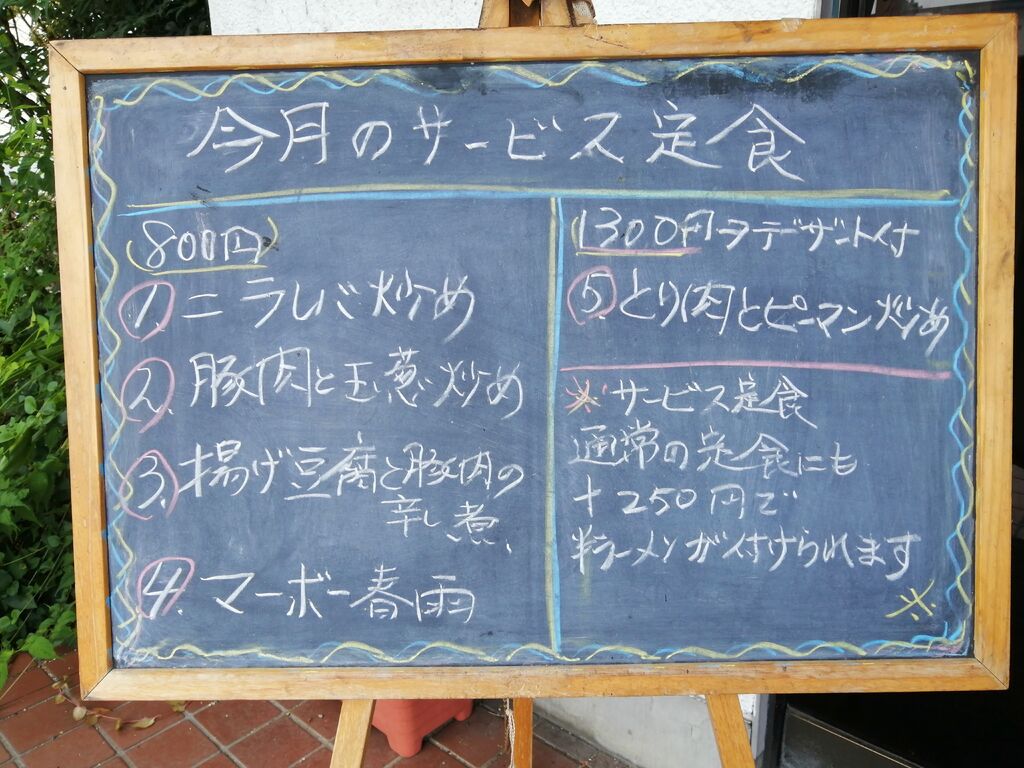 今月のサービス定食
(800円)
1. ニラレバ炒め
2. 豚肉と玉葱炒め
3. 揚げ豆腐と豚肉の
辛し煮
4. マーボー春雨
1300円→デザート付
5. とり肉とピーマン炒め
※サービス定食
通常の定食にも
+250円で
半ラーメンが付けられます
※